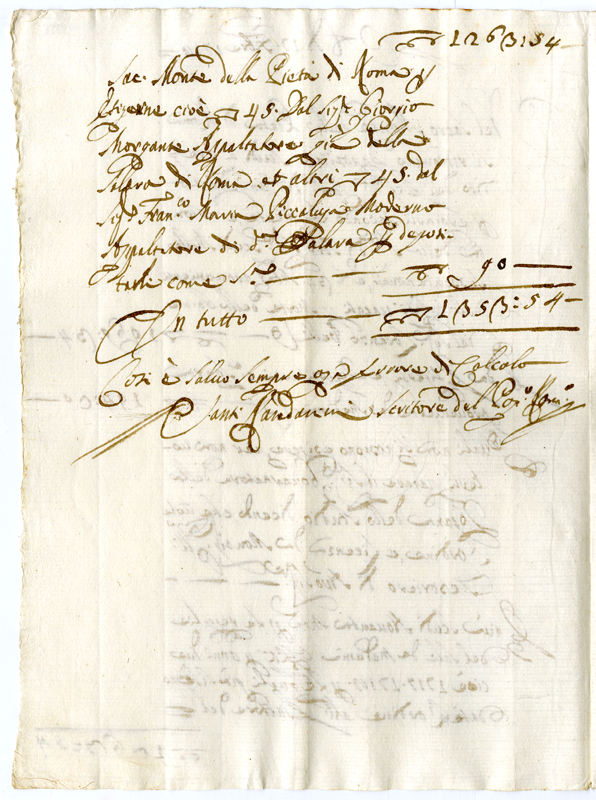 1263:54
Sac: Monte della Pietà di Roma p
Esigerne cioè 45. Dal Sig:r Giorgio
Morgante Appaltatore già della
Salara di Roma et altri 45. dal
Sig:r Fran:co Maria Piccaluga Moderno
Appaltatore di d:ta Salara p deposi-
tarli come S:a 90
In tutto 1353:54
Così è salvo sempre ogn errore di Calcolo
Santi scrittore del